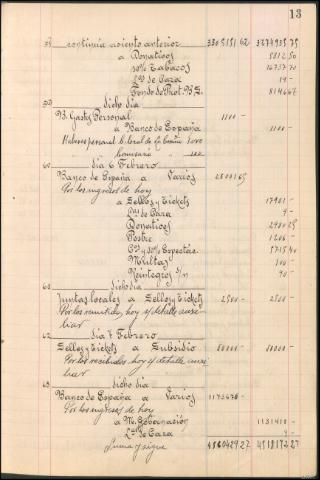 13
58 continúa asiento anterior 3305151 62 3274935 75
a Donativos 5812 50
10% Tabacos 16757 70
Lᵃˢ de Caza 19 -
Fondo de Prot. B.S. 8146 67
59 dicho día
B. Gastos Personal 1100 -
a Banco de España 1100 -
Haberes personal 1000
Comisaría " 100
60 día 6 Febrero
Banco de España a Varios
Por los ingresos de hoy
a Sellos y Tickets 17981 -
Lᵃˢ de Caza 9 -
Donativos
Postre 1206 -
10% Espectác. 5715 40
Multas 100 -
Reintegros s/n 90 -
61 dicho día
Juntas locales a Sellos y Tickets 2500 - 2500 -
Por los remitidos, hoy s/ detalle auxi-
liar
62 día 7 Febrero
Sellos y Tickets a Subsidio 80000 - 80000 -
Por los recibidos, hoy s/ detalle auxi-
liar
63 dicho día
Banco de España a Varios
Por los ingresos de hoy
a M. Gobernación
Lᵃˢ de Caza 9 -
Suma y sigue